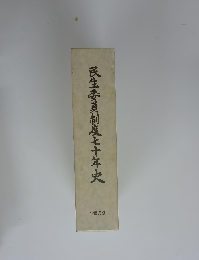 民生委員制度七十年史